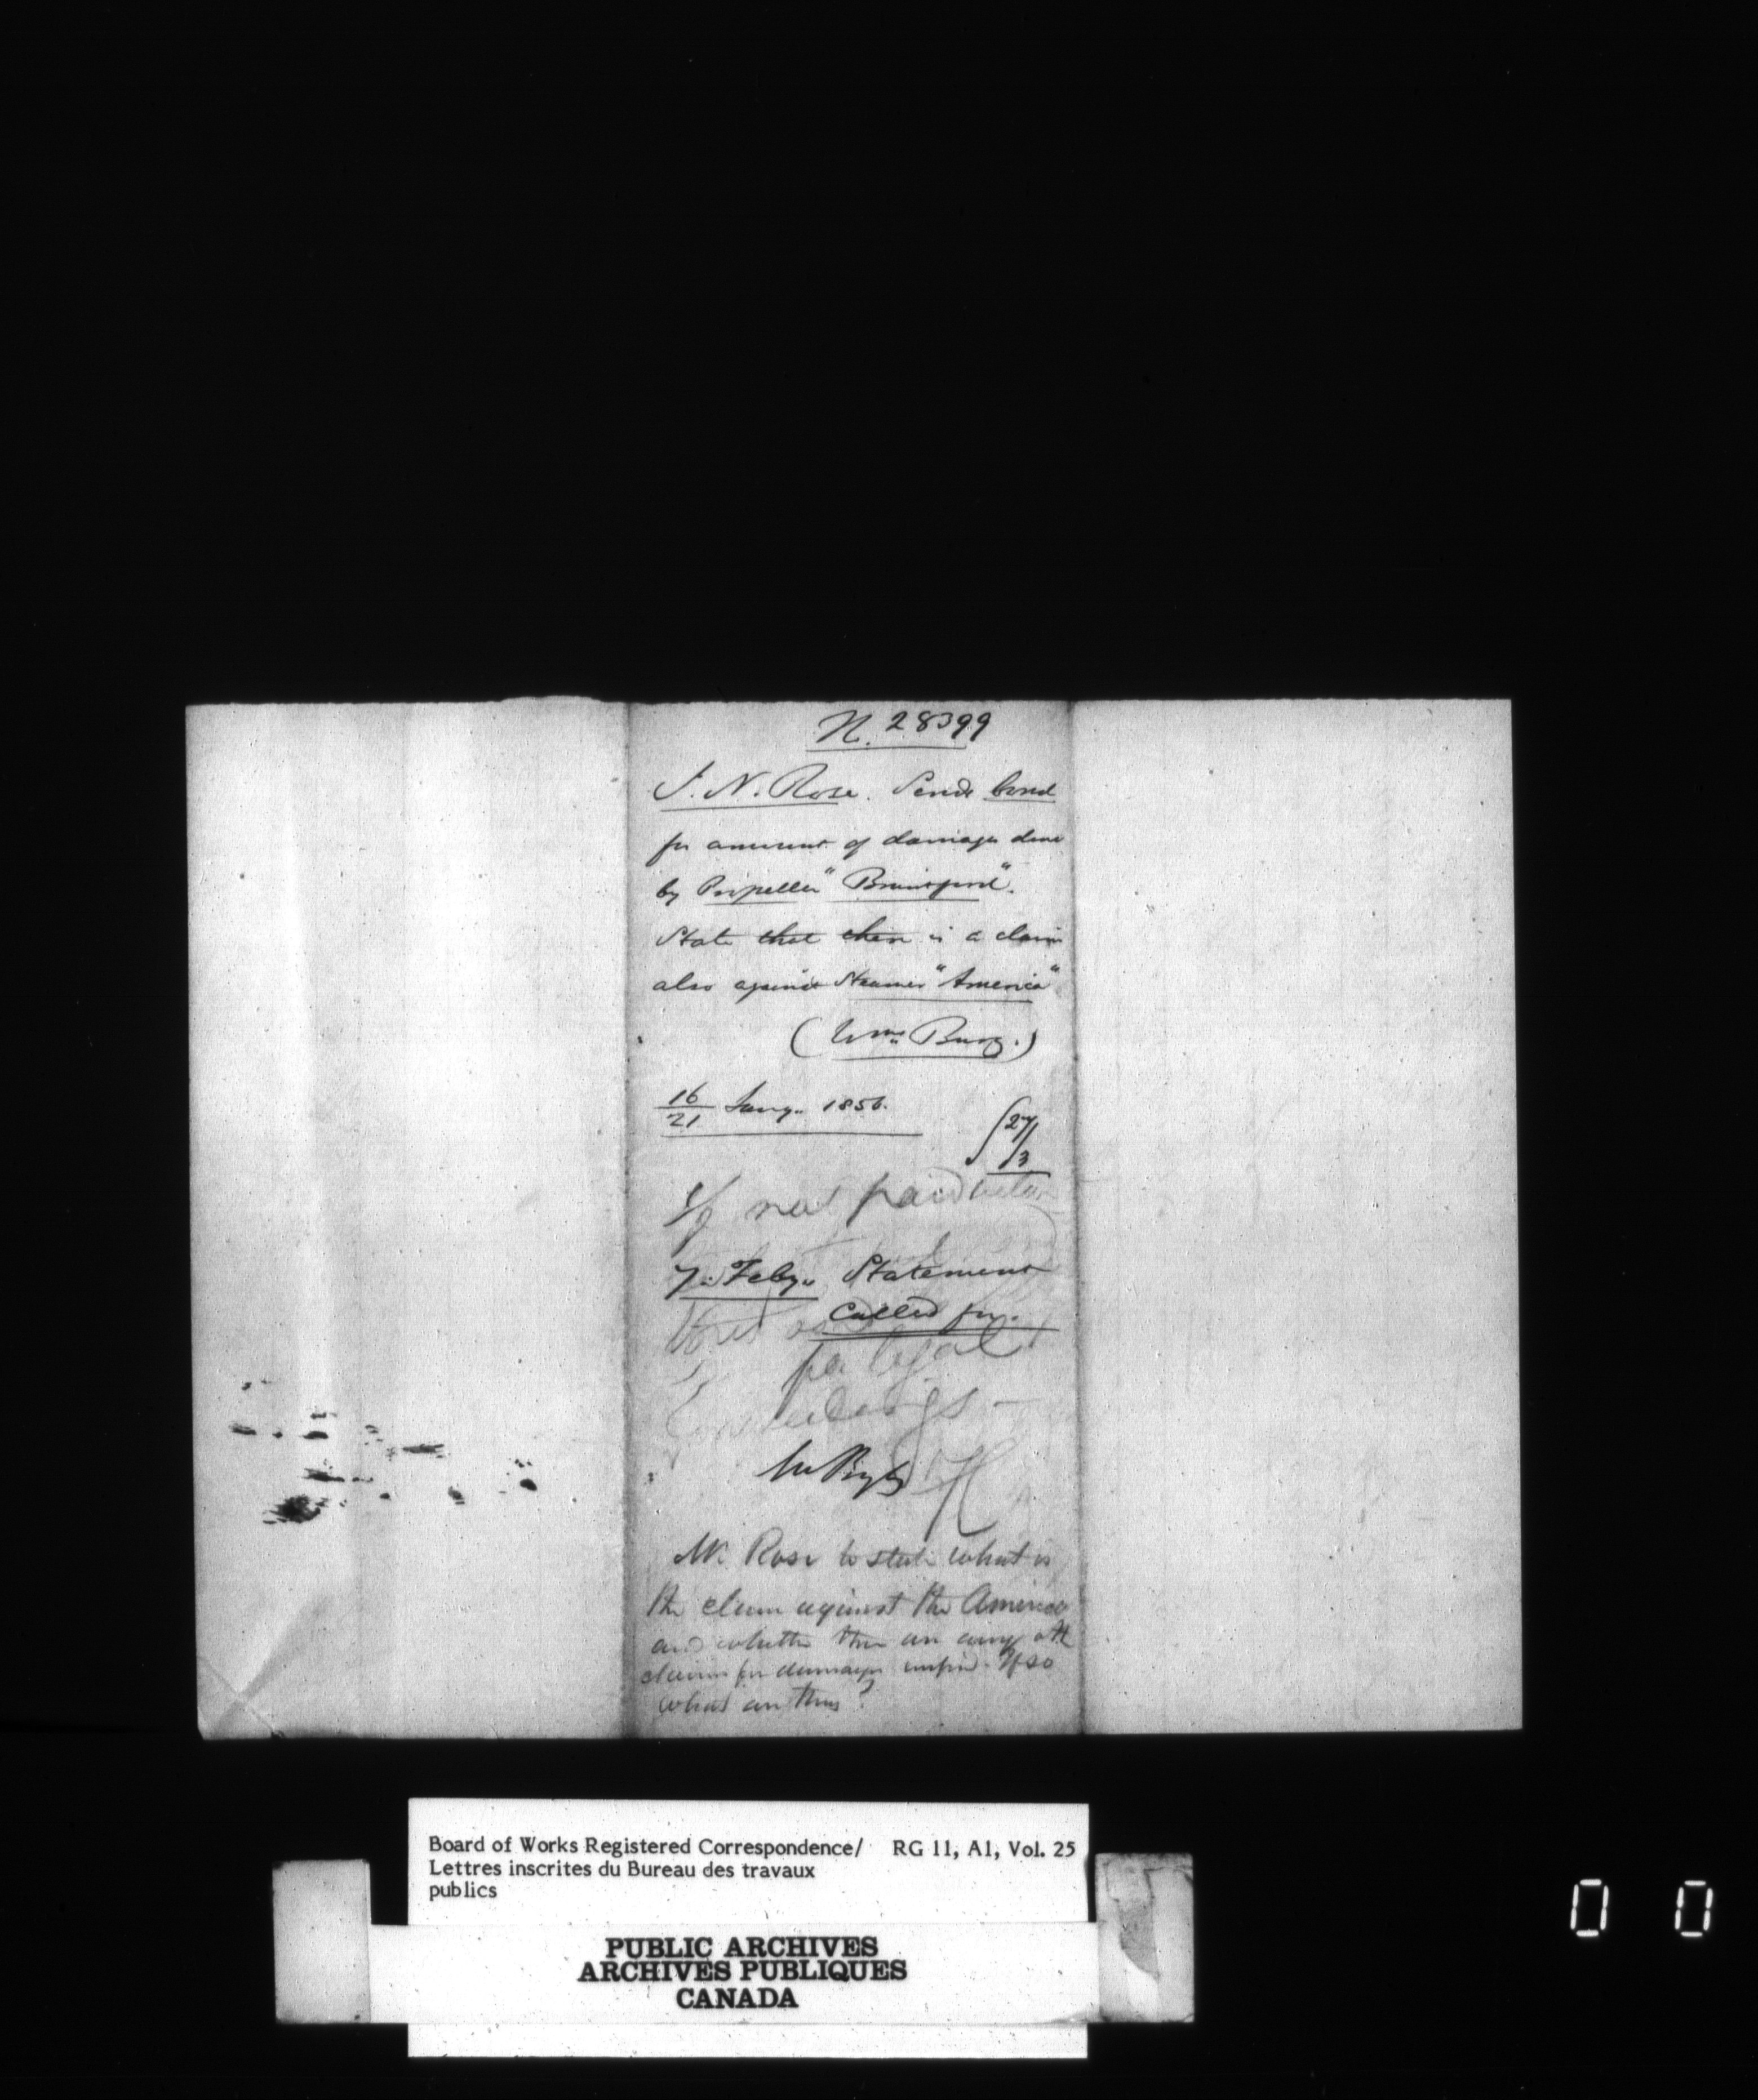 N. 28399
J. N. Rose. Sends bond
for amount of damages done
by Propeller "Brantford".
State that there is a claim
also against Steamer "America"
(Wms Burg.)
16/21 Jany. 1856.
27/3
If not paid
7. Feby. Statement
called for.
for legal
proceedings -
Mr. Rose to state what is
the claim against the America
and whether there are any oth
claims for damages unpaid. If so
what are they?
Board of Works Registered Correspondence/ RG 11, A1, Vol. 25
Lettres inscrites du Bureau des travaux
publics
PUBLIC ARCHIVES
ARCHIVES PUBLIQUES
CANADA
0 0